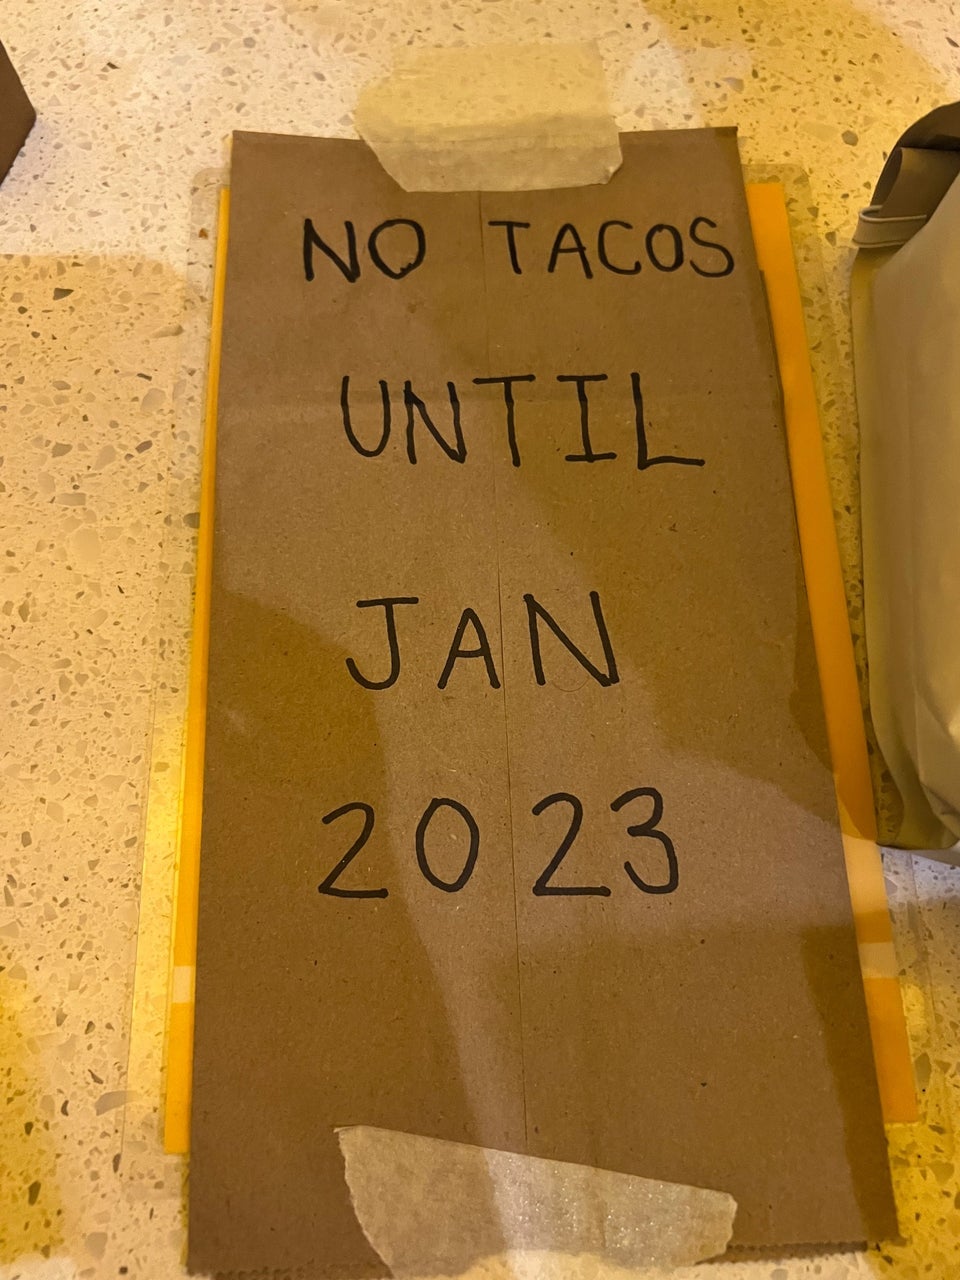 NO TACOS
UNTIL
JAN
2023